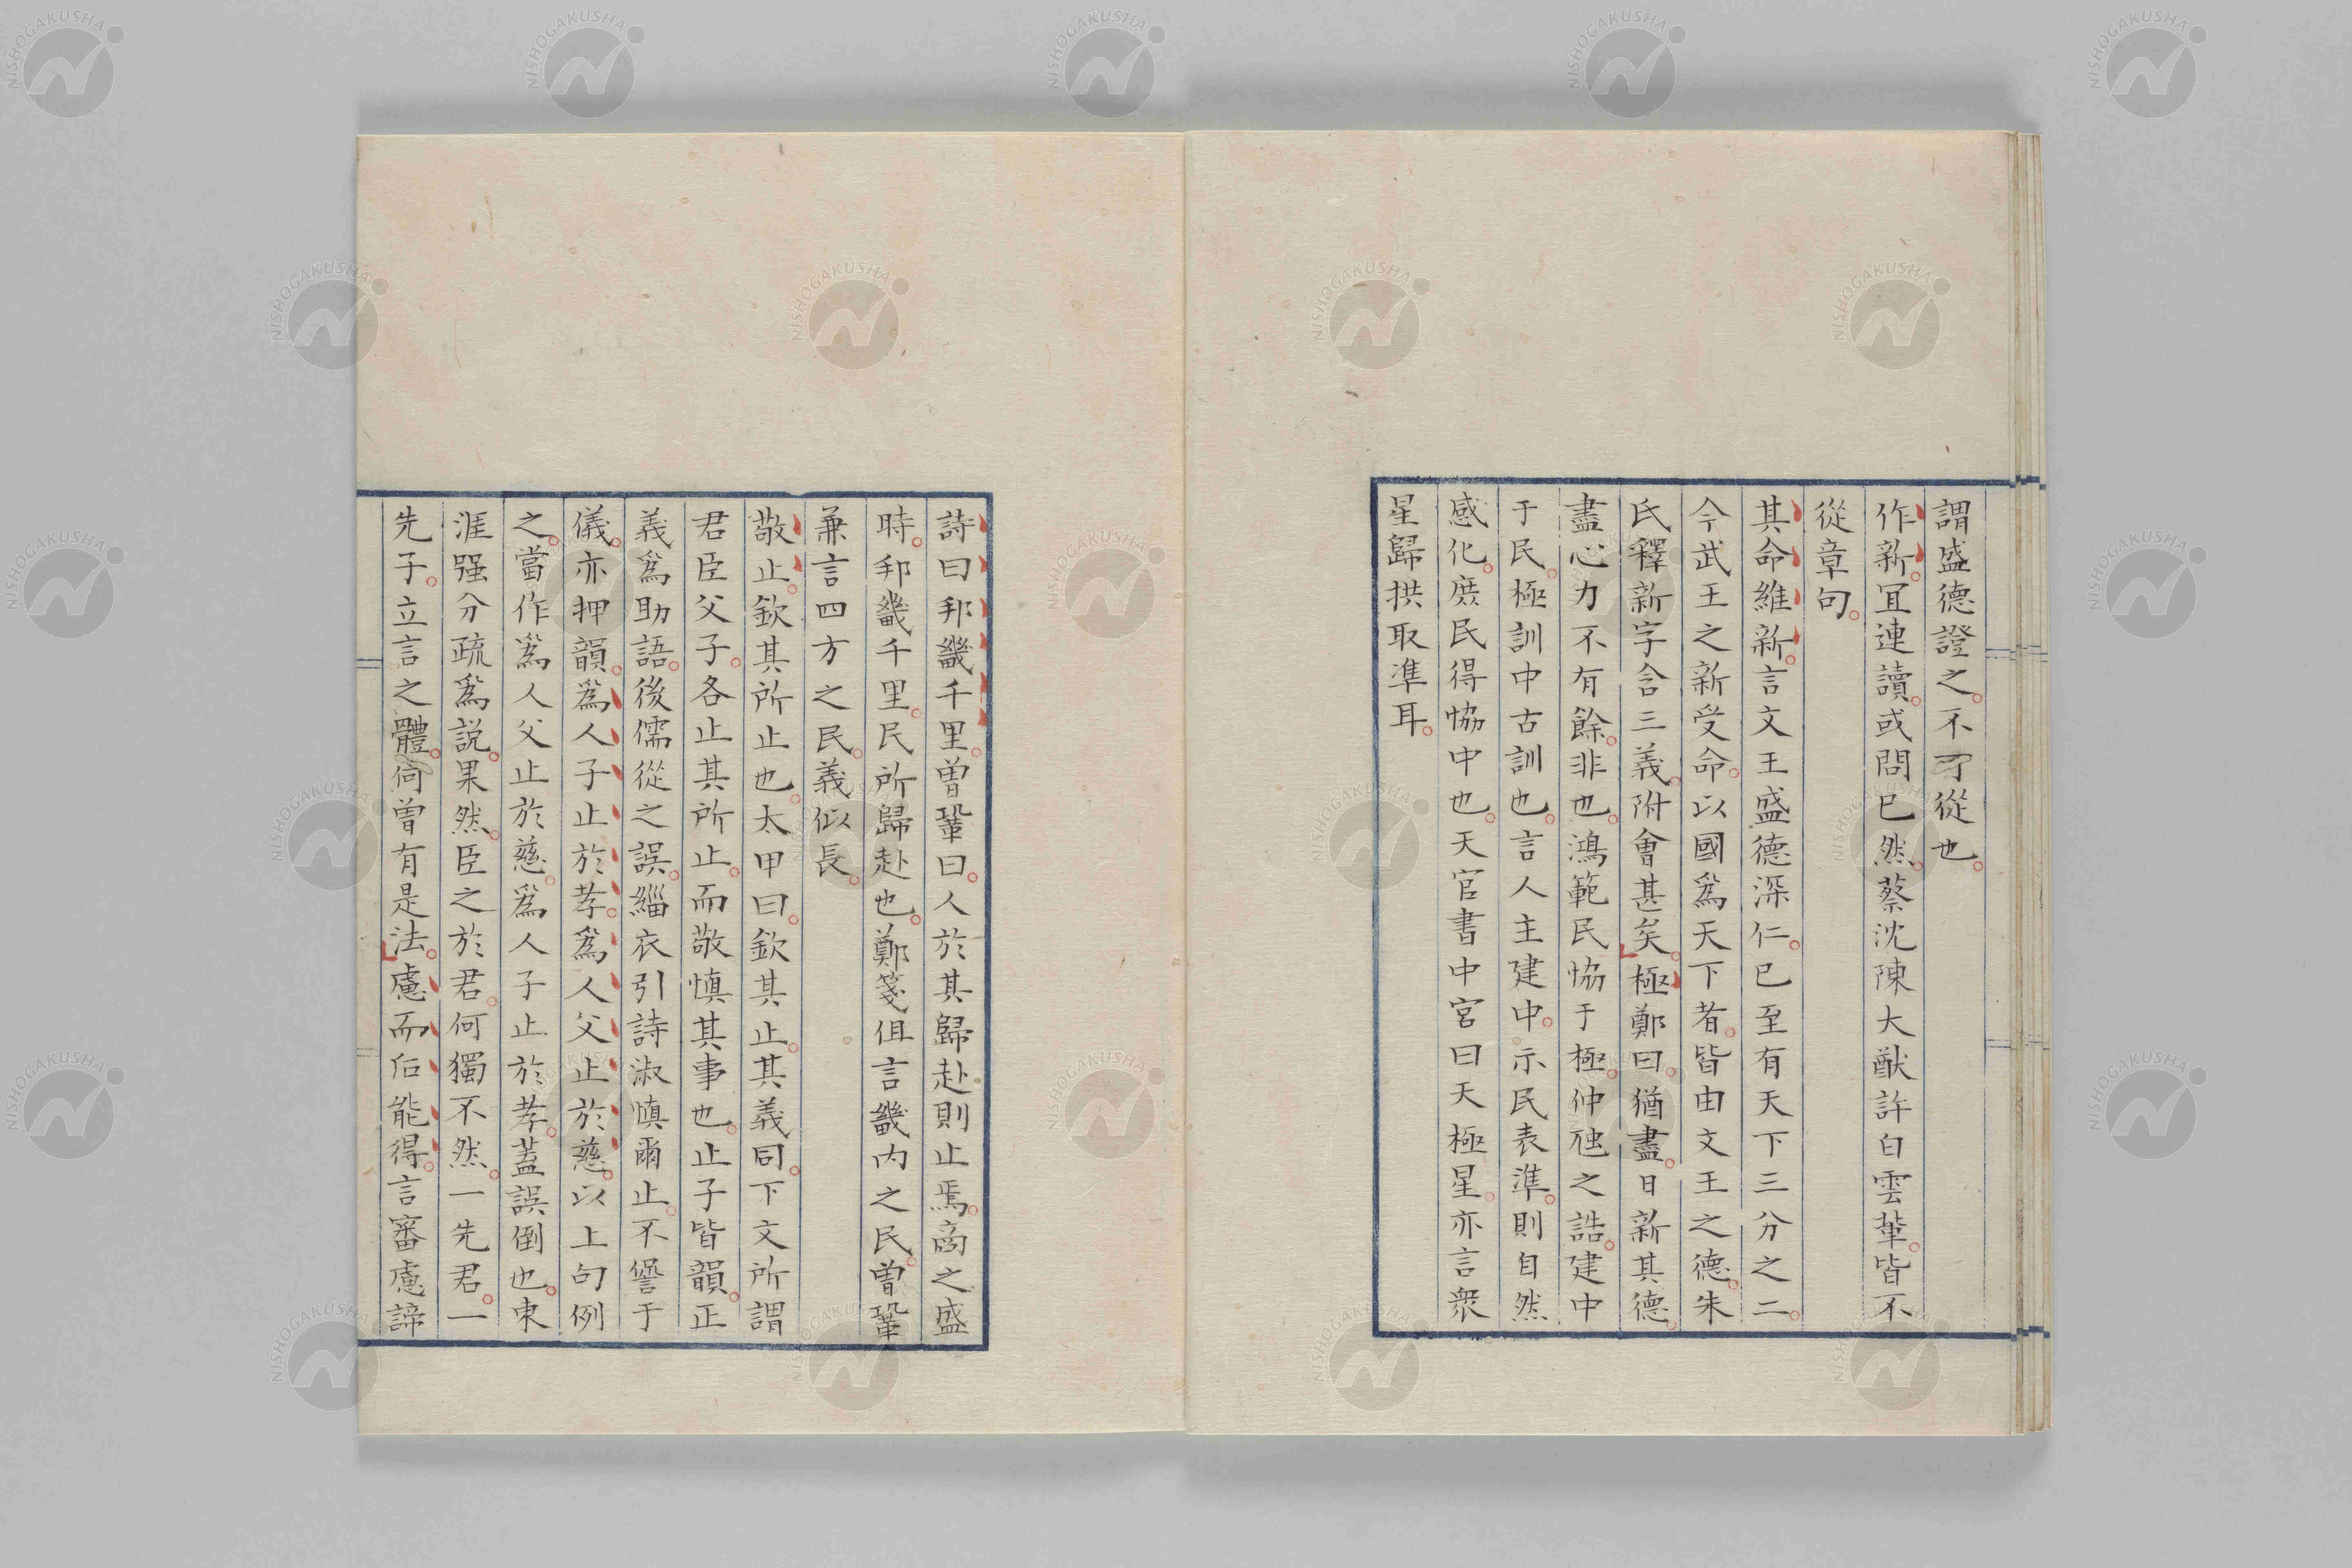 謂盛德證之不可從也
作新冝連讀或問已然蔡沈陳大猷許白雲輩皆不
從章句
其命維新言文王盛德深仁已至有天下三分之二
今武王之新受命以國爲天下者皆由文王之德朱
氏釋新字含三義附會甚矣極鄭曰猶盡日新其德
盡心力不有餘非也鴻範民恊于極仲虺之誥建中
于民極訓中古訓也言人主建中示民表準則自然
感化庶民得恊中也天官書中宮曰天極星亦言衆
星歸拱取準耳
詩曰邦畿千里曽鞏曰人於其歸赴則止焉商之盛
時邦畿千里民所歸赴也鄭箋但言畿内之民曽鞏
兼言四方之民義似長
敬止欽其所止也太甲曰欽其止其義同下文所謂
君臣父子各止其所止而敬慎其事也止子皆韻正
義爲助語後儒從之誤緇衣引詩淑慎爾止不諐于
儀亦押韻爲人子止於孝爲人父止於慈以上句例
之當作爲人父止於慈爲人子止於孝蓋誤倒也東
涯强分疏爲説果然臣之於君何獨不然一先君一
先子立言之體何曽有是法慮而后能得言審慮諦
NISHOGAKUSHA